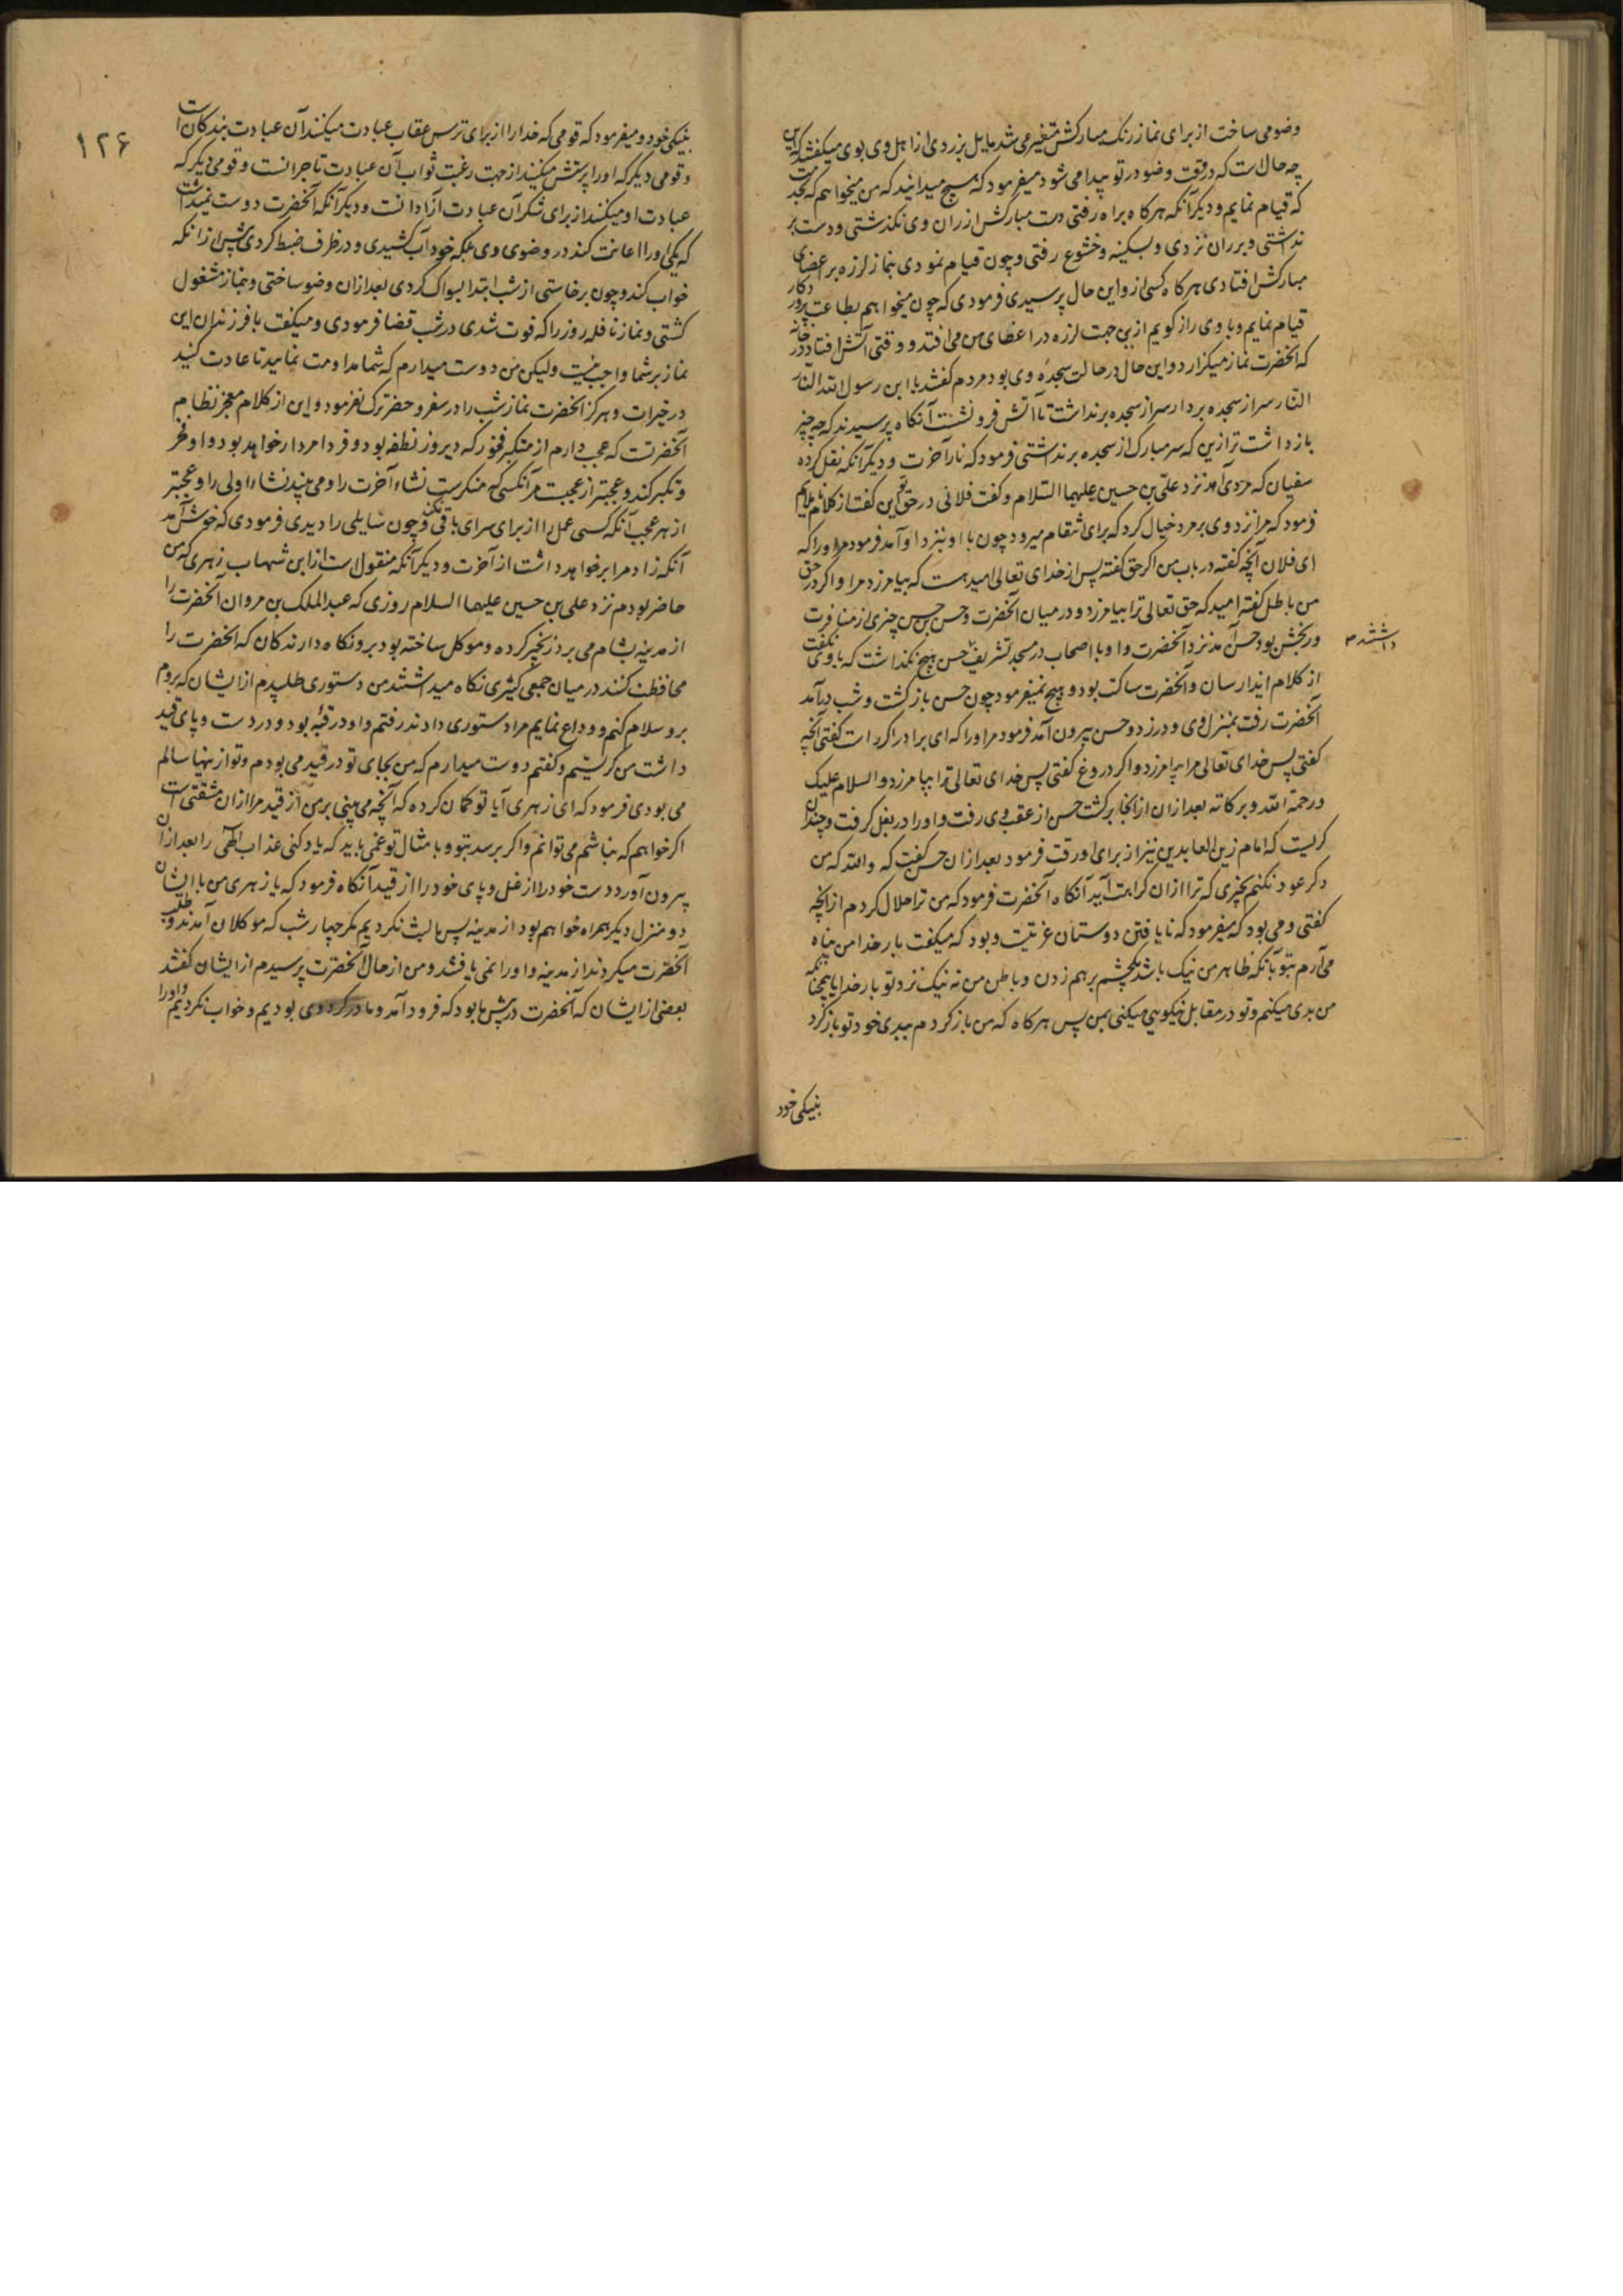 وضو می ساخت از برای نماز رنک مبارکش متغیر می شد مایل بزردی از اهل وی بوی میکفتند که این
چه حال است که در وقت وضو در تو پیدا می شود میفرمود که هیچ میدانید که من میخواهم که بخدمت
که قیام نمایم و دیکر آنکه هرکاه براه رفتی دست مبارکش از ران وی نکذشتی و دست بر
نداشتی و بر ران نزدی و بسکینه و خشوع رفتی و چون قیام نمودی بنماز لرزه بر اعضای
مبارکش افتادی هرکاه کسی ازو این حال پرسیدی فرمودی که چون میخواهم بطاعت پروردکار
قیام نمایم و با وی راز کویم ازین جهت لرزه در اعضای من می افتد و وقتی آتش افتاد در خانه
که آنحضرت نماز میکزارد و این حال در حالت سجدهٔ وی بود مردم کفتند یا ابن رسول الله النار
النار سر از سجده بردار سر از سجده برنداشت تا آتش فرو نشست آنکاه پرسیدند که چه چیز
بازداشت ترا ازین که سر مبارک از سجده برنداشتی فرمود که نار آخرت و دیکر آنکه نقل کرده
سفیان که مردی آمد نزد علی بن حسین علیهما السلام و کفت فلانی در حق تو این کفت از کلام ناملایم
فرمود که مرا نزد وی بر مرد خیال کرد که برای انتقام میرود چون با او نزد او آمد فرمود مر او را که
ای فلان آنچه کفتهٔ در باب من اکر حق کفتهٔ پس از خدای تعالی امید هست که بیامرزد مرا و اکر در حق
من باطل کفتهٔ امید که حق تعالی ترا بیامرزد و در میان آنحضرت و حسن بن حسن چیزی از منافرت
و رنجش بود حسن آمد نزد آنحضرت و او با اصحاب در مسجد تشریف داشتند حسن هیچ نکذاشت که با وی نکفت
از کلام ایذا رسان و آنحضرت ساکت بود و هیچ نمیفرمود چون حسن بازکشت و شب درآمد
آنحضرت رفت بمنزل وی و در زد و حسن بیرون آمد فرمود مر او را که ای برادر اکر راست کفتی آنچه
کفتی پس خدای تعالی مرا بیامرزد و اکر دروغ کفتی پس خدای تعالی ترا بیامرزد و السلام علیک
و رحمة الله و برکاته بعد ازان ازانجا برکشت حسن از عقب وی رفت و او را در بغل کرفت و چندان
کریست که امام زین العابدین نیز از برای او رقت فرمود بعد ازان حسن کفت که والله که من
دکر عود نکنم بچیزی که ترا ازان کراهت آید آنکاه آنحضرت فرمود که من ترا حلال کردم از آنچه
کفتی و می بود که میفرمود که نایافتن دوستان غربتیت و بود که میکفت بار خدا من پناه
می آرم بتو بآنکه ظاهر من نیک باشد بچشم برهم زدن و باطن من نه نیک نزد تو بار خدایا همچنانکه
من بدی میکنم و تو در مقابل نیکویی میکنی بمن پس هرکاه که من بازکردم ببدی خود تو بازکرد
بنیکی خود
۱۲۶
بنیکی خود و میفرمود که قومی که خدا را از برای ترس عقاب عبادت میکنند آن عبادت بندکان است
و قومی دیکر که او را پرستش میکنند از جهت رغبت ثواب آن عبادت تاجرانست و قومی دیکر که
عبادت او میکنند از برای شکر آن عبادت آزادانست و دیکر آنکه آنحضرت دوست نمیداشت
که یکی او را اعانت کند در وضوی وی بلکه خود آب کشیدی و در ظرف ضبط کردی پیش ازانکه
خواب کند و چون برخاستی از شب ابتدا بسواک کردی بعد ازان وضو ساختی و بنماز مشغول
کشتی و نماز نافلهٔ روز را که فوت شدی در شب قضا فرمودی و میکفت با فرزندان این
نماز بر شما واجب نیست ولیکن من دوست میدارم که شما مداومت نمایید تا عادت کنید
در خیرات و هرکز آنحضرت نماز شب را در سفر و حضر ترک نفرمود و این از کلام معجز نظام
آنحضرتست که عجب دارم از متکبر فخور که دیروز نطفه بود و فردا مردار خواهد بود و او فخر
و تکبر کند و عجبتر از عجبست مر آنکسی که منکرست نشاء آخرت را و می بیند نشاء اولی را و عجبتر
از هر عجب آنکه کسی عمل را از برای سرای باقی نکند و چون سایلی را دیدی فرمودی که خوش آمد
آنکه زاد مرا بر خواهد داشت از آخرت و دیکر آنکه منقول است از ابن شهاب زهری که من
حاضر بودم نزد علی بن حسین علیهما السلام روزی که عبد الملک بن مروان آنحضرت را
از مدینه بشام می برد زنجیر کرده و موکل ساخته بود برو نکاه دارندکان که آنحضرت را
محافظت کنند در میان جمعی کثیری نکاه میداشتند من دستوری طلبیدم از ایشان که بروم
برو سلام کنم و وداع نمایم مرا دستوری دادند رفتم و او در قبه بود و در دست و پای قید
داشت من کریستم و کفتم دوست میدارم که من بجای تو در قید می بودم و تو ازینها سالم
می بودی فرمود که ای زهری آیا تو کمان کرده که آنچه می بینی بر من از قید مرا ازان مشقتی است
اکر خواهم که نباشم می توانم و اکر برسد بتو و بامثال تو غمی باید که یاد کنی عذاب الهی را بعد ازان
بیرون آورد دست خود را از غل و پای خود را از قید آنکاه فرمود که یا زهری من با ایشان
دو منزل دیکر همراه خواهم بود از مدینه پس ما لبث نکردیم مکر چهار شب که موکلان آمدند و طلب
آنحضرت میکردند از مدینه و او را نمی یافتند و من از حال آنحضرت پرسیدم از ایشان کفتند
بعضی از ایشان که آنحضرت در پیش ما بود که فرود آمد و ما در کرد وی بودیم و خواب نکردیم و او را